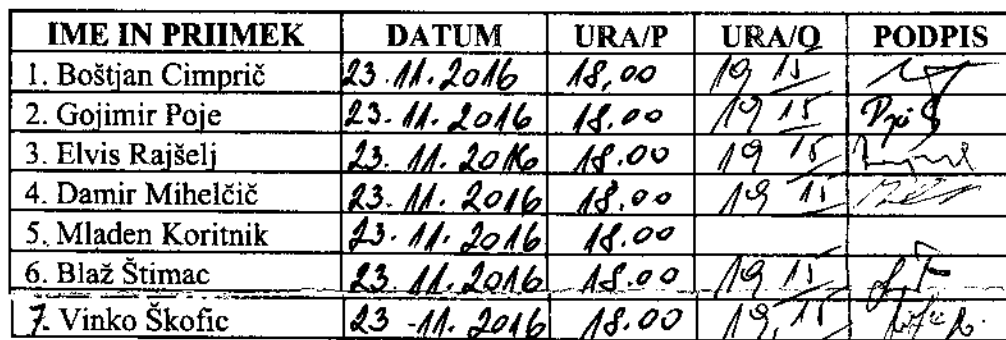 IME IN PRIIMEK DATUM URA/P URA/O PODPIS
1. Boštjan Cimprič 23.11.2016 18,00 19 15
2. Gojimir Poje 23.11.2016 18.00 19 15
3. Elvis Rajšelj 23.11.2016 18.00 19 15
4. Damir Mihelčič 23.11.2016 18.00 19 15
5. Mladen Koritnik 23.11.2016 18.00
6. Blaž Štimac 23.11.2016 18.00 19 15
7. Vinko Škofic 23.11.2016 18.00 19,15